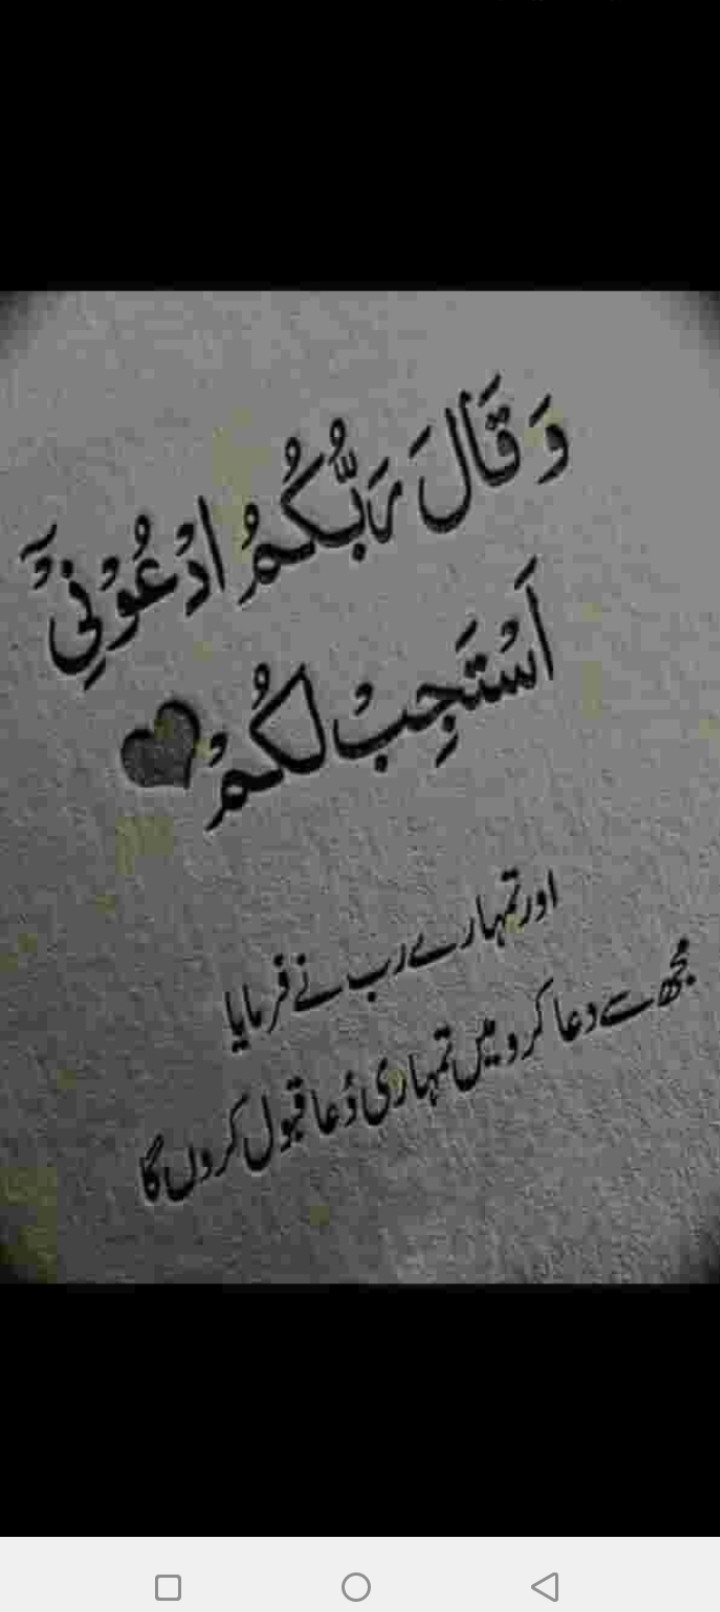 وَقَالَ رَبُّكُمُ ادْعُوْنِيْۤ
اَسْتَجِبْ لَكُمْ
اور تمہارے رب نے فرمایا
مجھ سے دعا کرو میں تمہاری دُعا قبول کروں گا